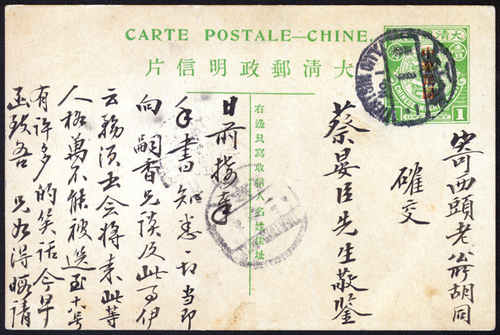 CARTE POSTALE—CHINE.
大清郵政明信片
大清
1
寄西頭老爺胡同
確交
蔡晏臣先生敬鑒
右邊只寫收信人名姓住址
日前接奉
手書知悉一切當即
向嗣香兄談及此事伊
云務須去會將來此等
人格萬不能被選至十号
有許多的笑話今早
函致吾兄如得暇請